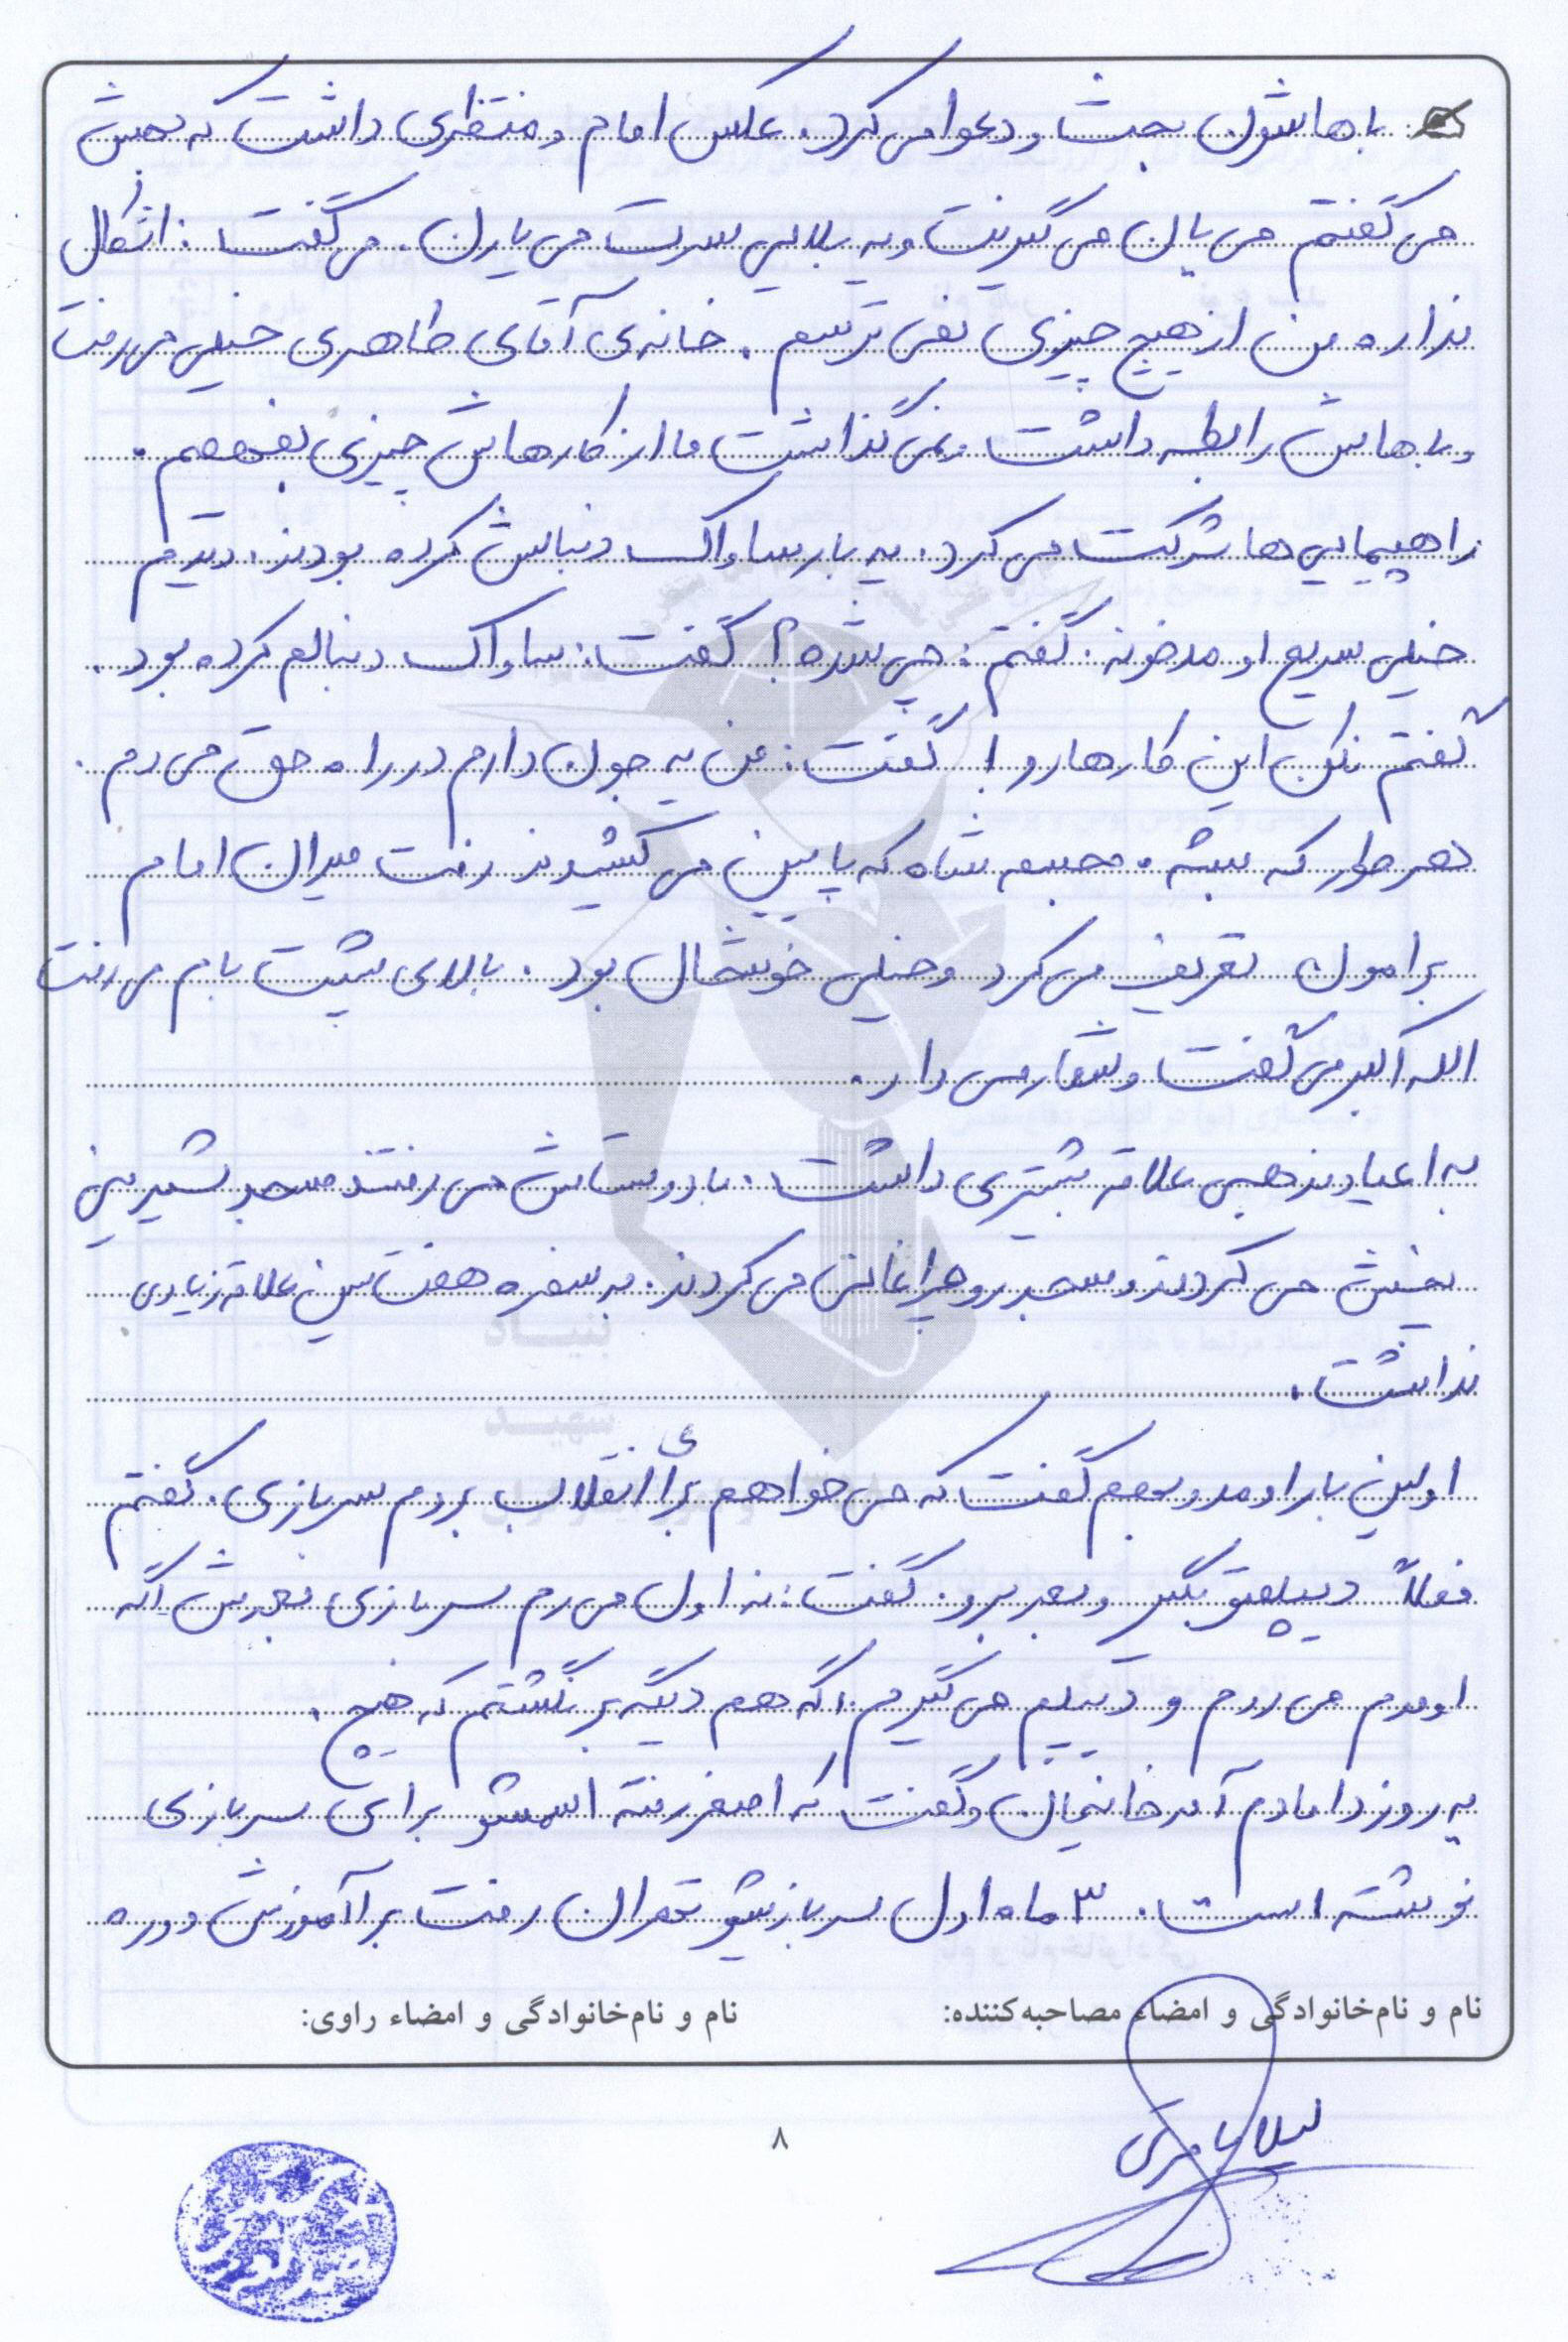 باهاشون بحث و دعوا می کرد. عکس امام و منتظری داشت که بهش
می گفتم می یان می گیرنت و یه بلایی سرت می یارن. می گفت: اشکال
نداره من از هیچ چیزی نمی ترسم. خانه ی آقای طاهری خیلی می رفت
و باهاش رابطه داشت. نمی گذاشت ما از کارهاش چیزی بفهمیم.
راهپیمایی ها شرکت می کرد. یه بار ساواک دنبالش کرده بودند. دیدم
خیلی سریع اومد خونه. گفتم: چی شده؟ گفت: ساواک دنبالم کرده بود.
گفتم نکن این کارها رو! گفت: من یه جون دارم در راه حق می دم.
هر طور که میشه. مجسمه شاه که پایین می کشیدند رفت میدان امام
برامون تعریف می کرد و خیلی خوشحال بود. بالای پشت بام می رفت
الله اکبر می گفت و شعار می داد.
به اعیاد مذهبی علاقه بیشتری داشت. با دوستاش می رفتند مسجد شیرینی
پخش می کردند و مسجد رو چراغانی می کردند. به سفره هفت سین علاقه زیادی
نداشت.
اولین بار اومد و بهم گفت که می خواهم برای انقلاب بردم سربازی. گفتم
فعلاً دیپلمتو بگیر و بعد برو. گفت: نه اول می رم سربازی بعدش اگه
اومدم می ردم و دیپلم می گیرم اگه هم دیگه بر نگشتم که هیچ.
یه روز دامادم آمد خانیمان و گفت که اصغر رفته اسمشو برای سربازی
نوشته است. ۳ ماه اول سربازیشو تهران رفت برا آموزش دوره
نام و نام‌خانوادگی و امضاء مصاحبه‌کننده: نام و نام‌خانوادگی و امضاء راوی:
لیلا
۸
بنیاد
شهید